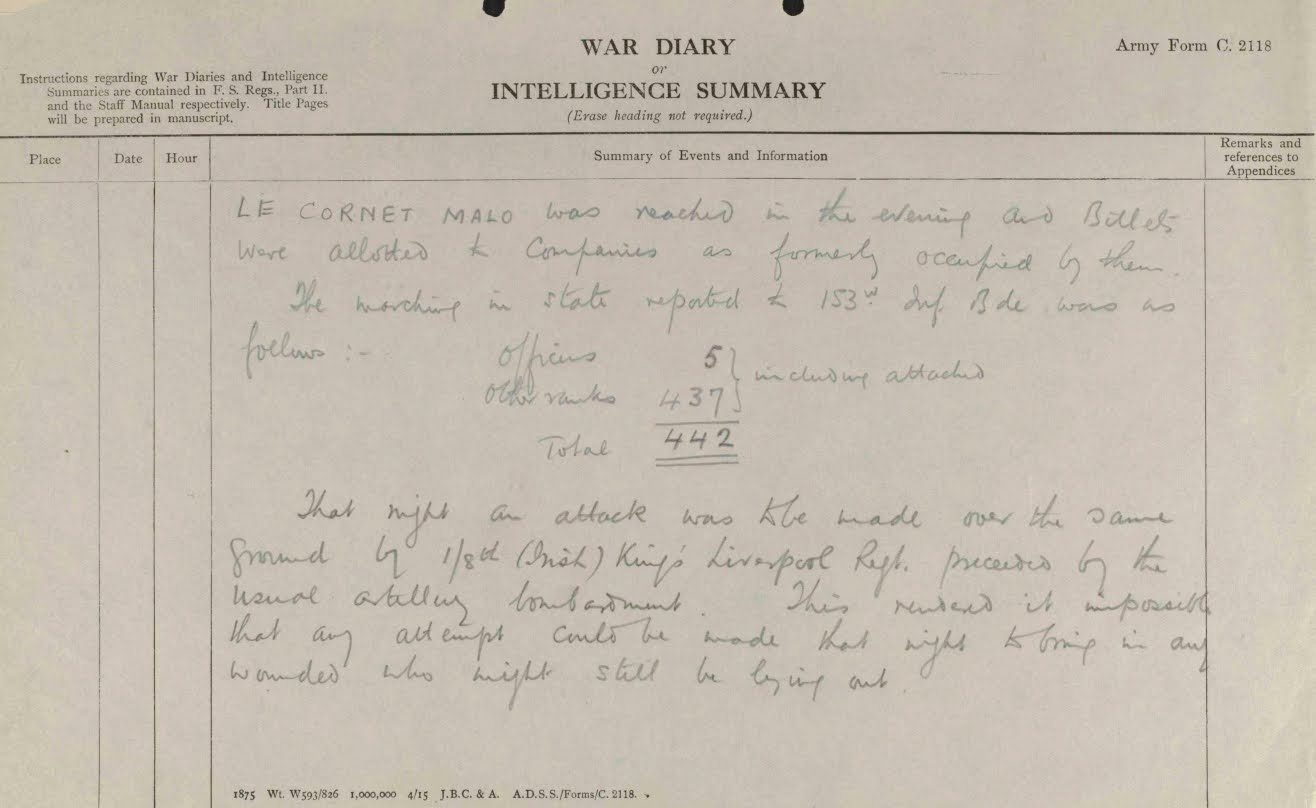 WAR DIARY
or
INTELLIGENCE SUMMARY
(Erase heading not required.)
Army Form C. 2118
Instructions regarding War Diaries and Intelligence
Summaries are contained in F. S. Regs., Part II.
and the Staff Manual respectively. Title Pages
will be prepared in manuscript.
Place
Date
Hour
Summary of Events and Information
Remarks and
references to
Appendices
LE CORNET MALO was reached in the evening and Billets
were allotted to Companies as formerly occupied by them.
The marching in state reported to 153rd Inf. Bde was as
follows :-
Officers 5 } including attached
Other ranks 437
Total 442
That night an attack was to be made over the same
ground by 1/8th (Irish) King's Liverpool Regt. preceded by the
usual artillery bombardment. This rendered it impossible
that any attempt could be made that night to bring in any
wounded who might still be lying out.
1875 Wt. W593/826 1,000,000 4/15 J.B.C. & A. A.D.S.S./Forms/C. 2118.